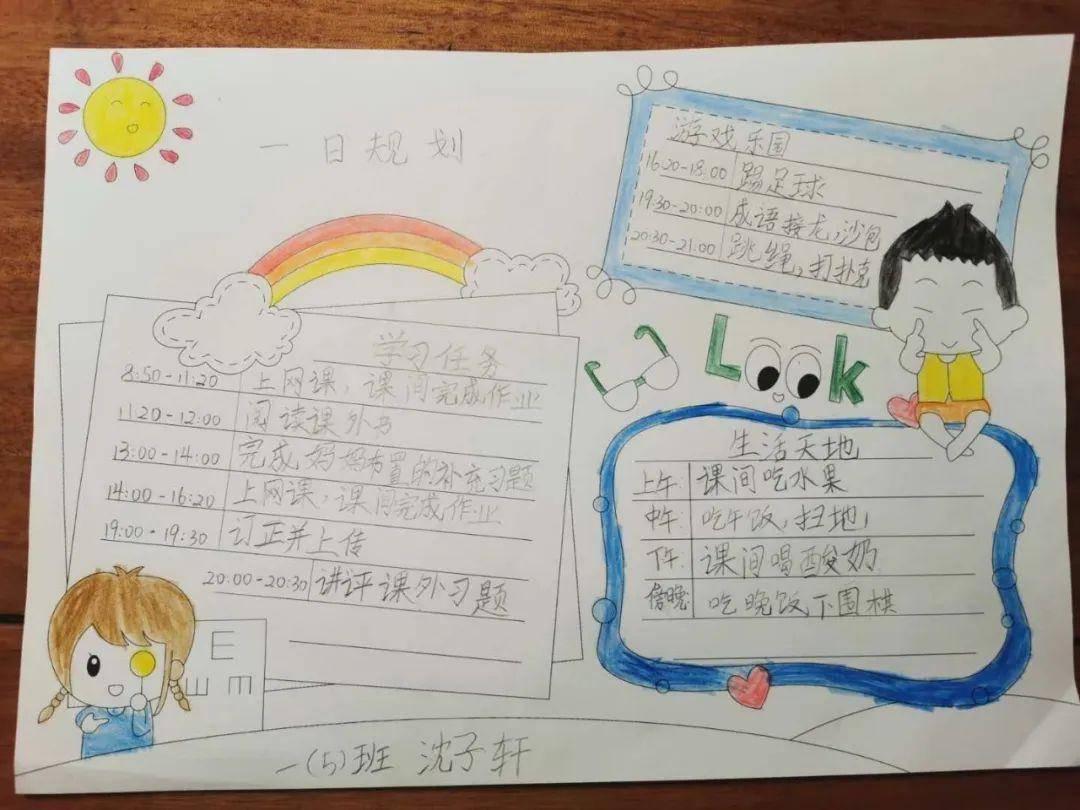 一日规划
游戏乐园
16:20-18:00 踢足球
19:30-20:00 成语接龙,沙包
20:30-21:00 跳绳,打扑克
学习任务
8:50-11:20 上网课,课间完成作业
11:20-12:00 阅读课外书
13:00-14:00 完成妈妈布置的补充习题
14:00-16:20 上网课,课间完成作业
19:00-19:30 订正并上传
20:00-20:30 讲评课外习题
Look
生活天地
上午: 课间吃水果
中午: 吃午饭,扫地
下午: 课间喝酸奶
傍晚 吃晚饭,下围棋
E
Ш m
一(5)班 沈子轩